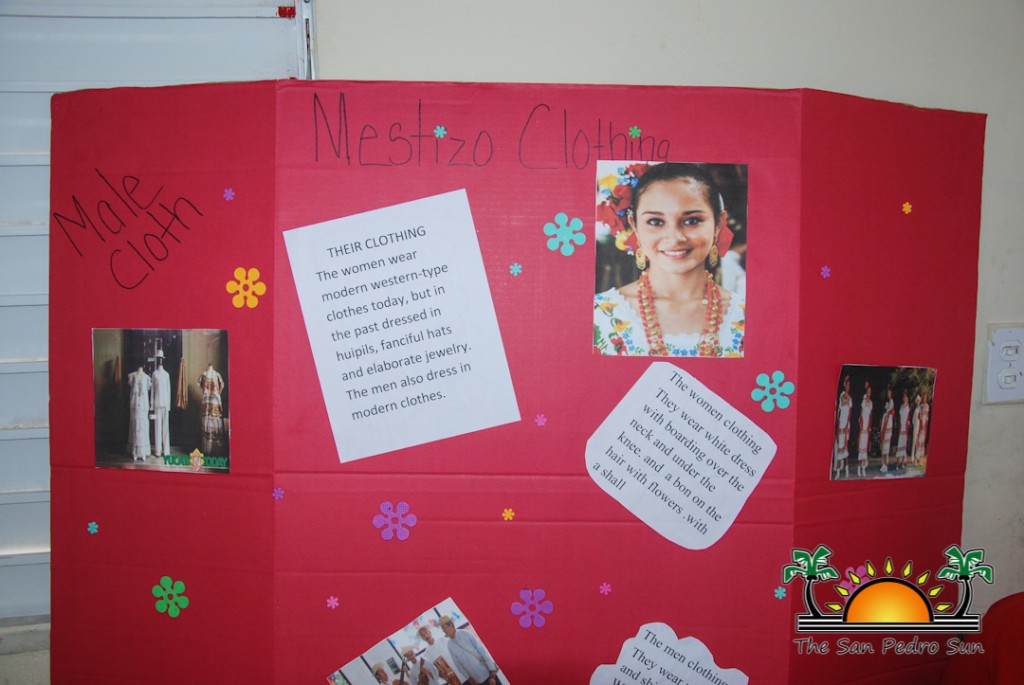 Mestizo Clothing
Male
Cloth
THEIR CLOTHING
The women wear
modern western-type
clothes today, but in
the past dressed in
huipils, fanciful hats
and elaborate jewelry.
The men also dress in
modern clothes.
The women clothing
They wear white dress
with boarding over the
neck and under the
knee. and a bon on the
hair with flowers .with
a shall
YUCATAN TODAY
The men clothing
They wear
and shi
The San Pedro Sun